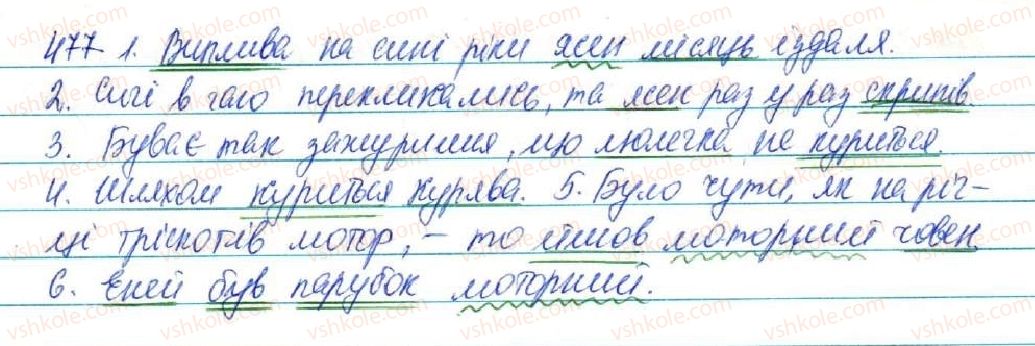 477 1. Виплива на сині ріки ясен місяць іздаля.
2. Сичі в гаю перекликались, та ясен раз у раз скрипів.
3. Буває так зажуришся, що люлечка не куриться.
4. Шляхом куриться курява. 5. Було чути, як на річ-
ці тріскотів мотор, – то йшов моторний човен
6. Еней був парубок моторний.